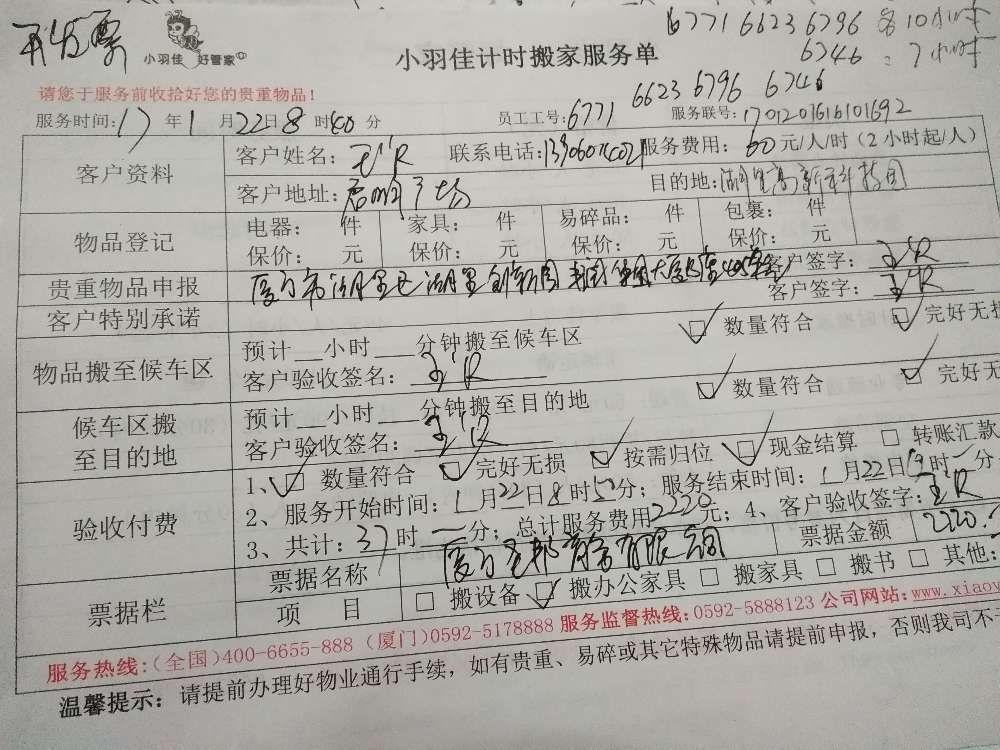 开发票
小羽佳 好管家
小羽佳计时搬家服务单
6771 6623 6796 各10小时
6746 : 7小时
请您于服务前收拾好您的贵重物品！
6623 6796 6746
服务时间：17年1月22日8时40分 员工工号：6771 服务联号：1701201616101692
客户资料 客户姓名： 联系电话： 服务费用：60元/人/时（2小时起/人）
客户地址：广场 目的地：湖里高新科技园
物品登记 电器： 件 家具： 件 易碎品： 件 包裹： 件
保价： 元 保价： 元 保价： 元 保价： 元
贵重物品申报 厦门市湖里区湖里创新园 客户签字：
客户特别承诺 客户签字：
物品搬至候车区 预计__小时___分钟搬至候车区 数量符合 完好无损
客户验收签名：
候车区搬至目的地 预计__小时___分钟搬至目的地 数量符合 完好无
客户验收签名：
验收付费 1、 数量符合 完好无损 按需归位 现金结算 转账汇款
2、服务开始时间：1月22日8时50分；服务结束时间：1月22日19时一分
3、共计：37时一分；总计服务费用2220元；4、客户验收签字：
票据栏 票据名称 厦门 商务有限公司 票据金额 2220.
项 目 搬设备 搬办公家具 搬家具 搬书 其他：
服务热线：（全国）400-6655-888（厦门）0592-5178888 服务监督热线：0592-5888123 公司网站：www.xiaoy
温馨提示：请提前办理好物业通行手续，如有贵重、易碎或其它特殊物品请提前申报，否则我司不